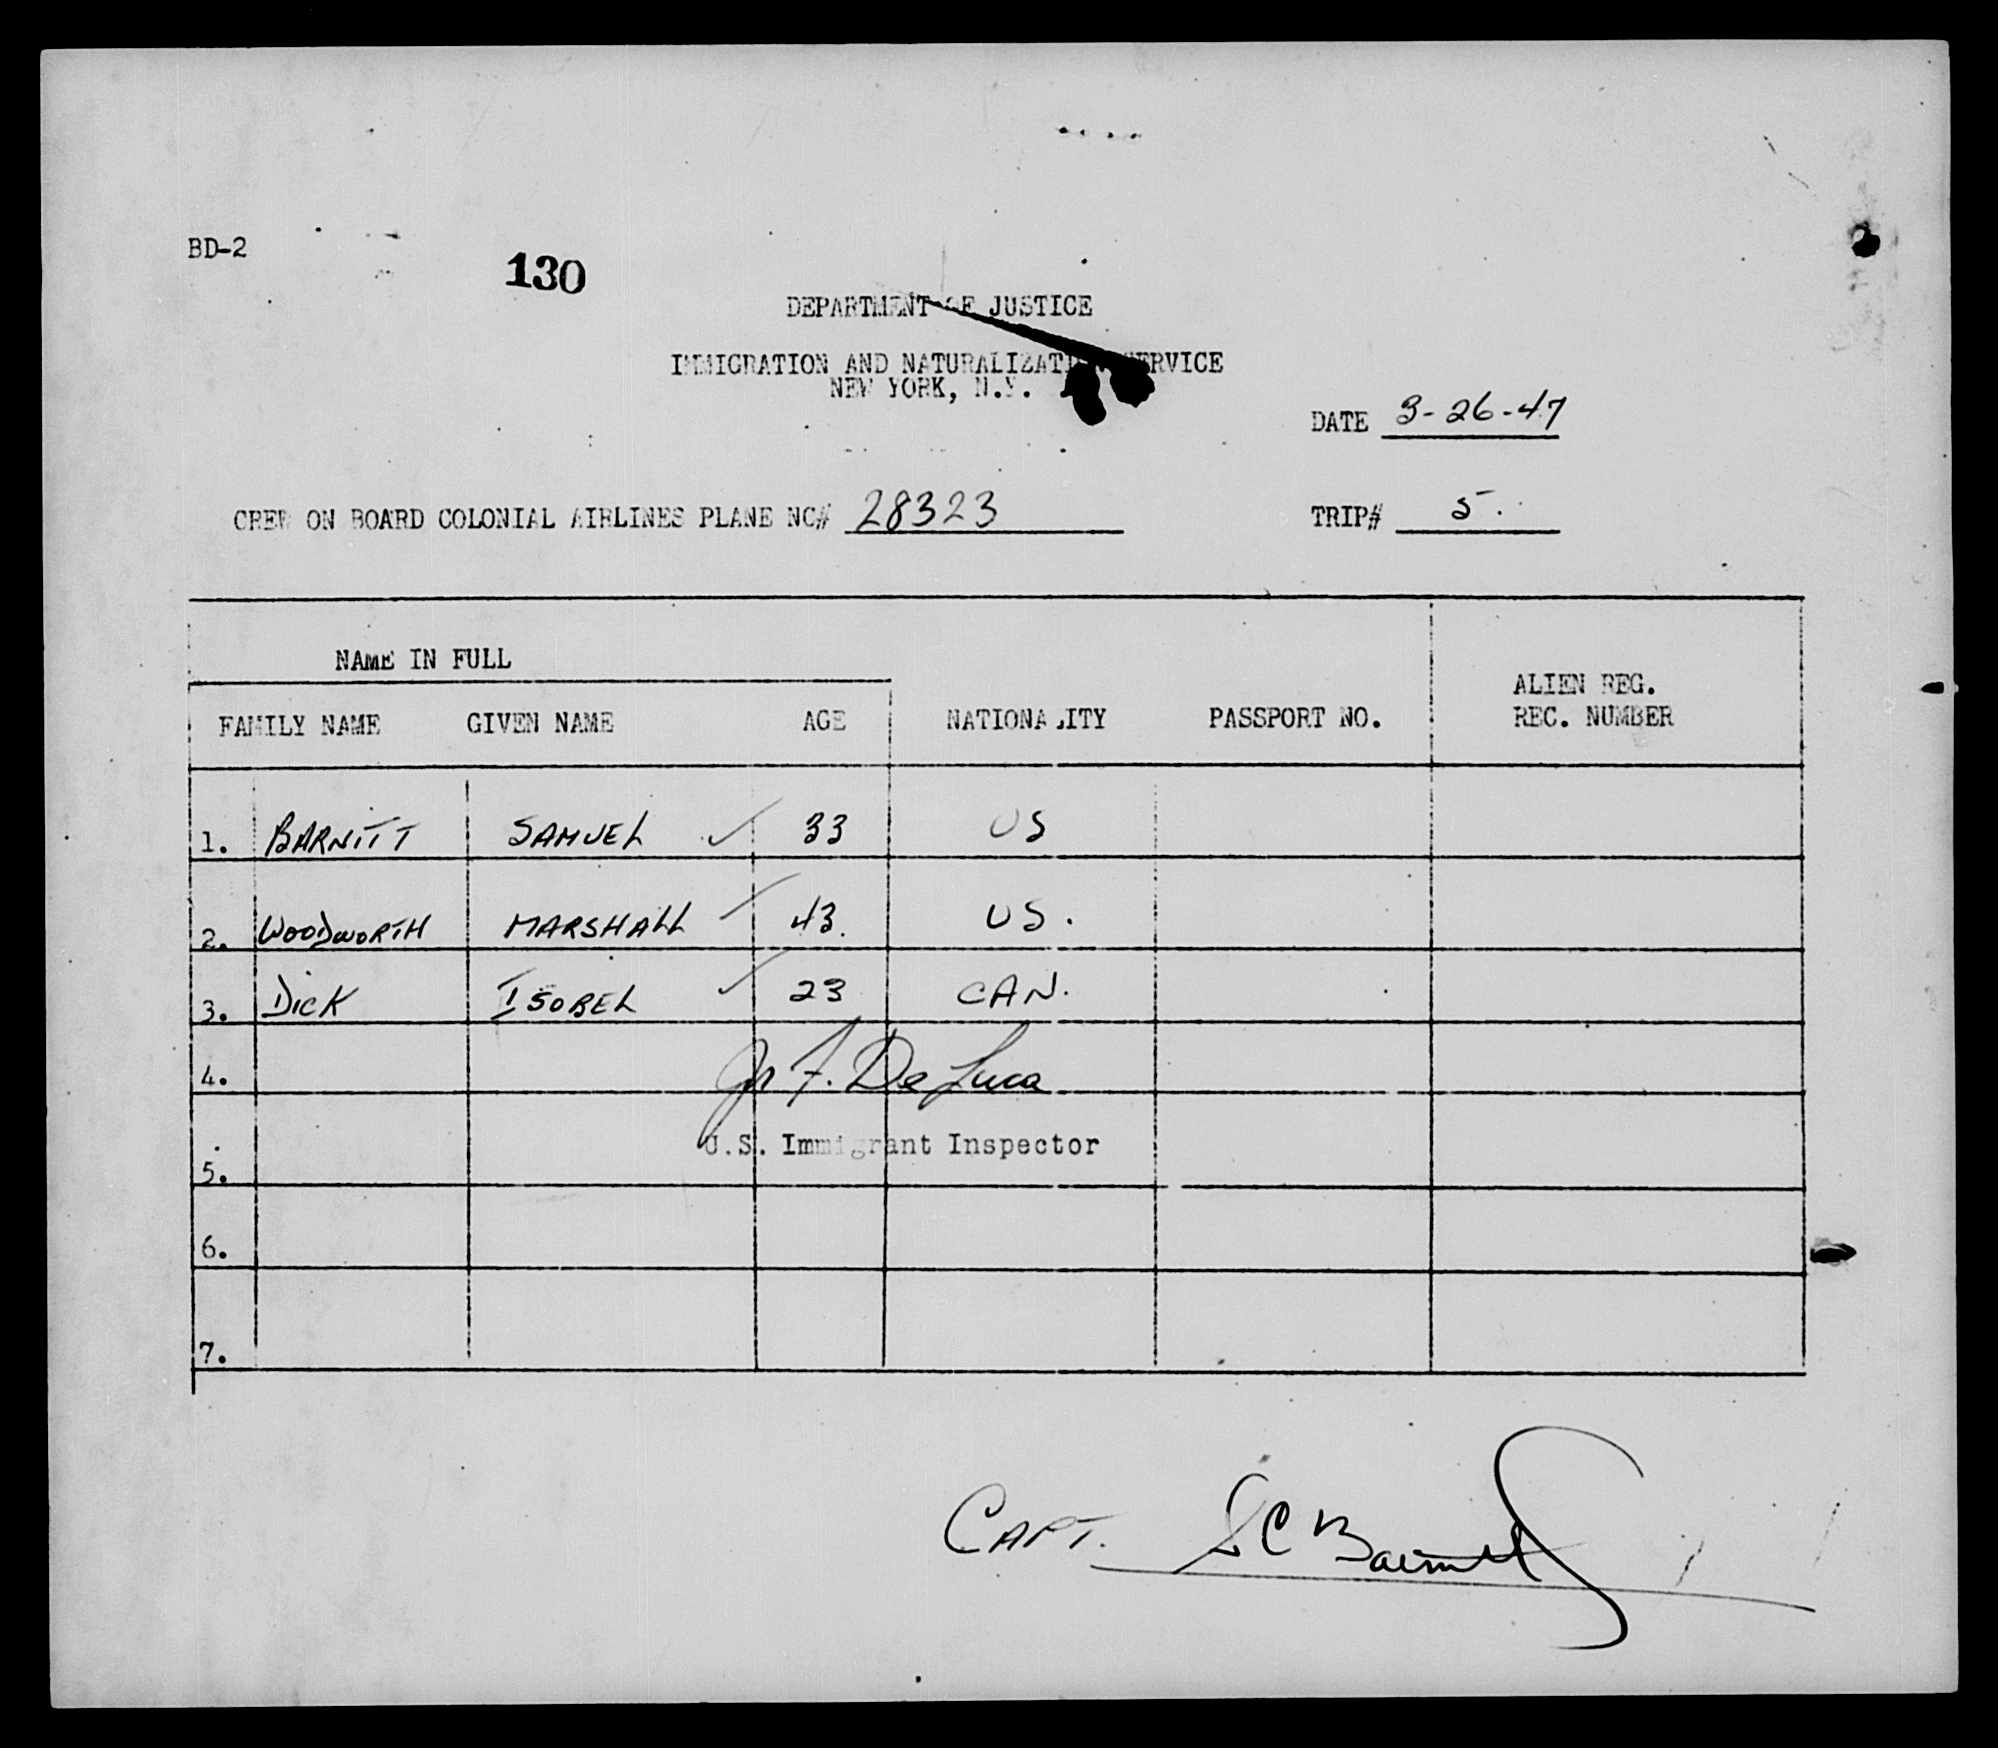 BD-2
130
DEPARTMENT OF JUSTICE
IMMIGRATION AND NATURALIZATION SERVICE
NEW YORK, N.Y.
DATE 3-26-47
CREW ON BOARD COLONIAL AIRLINES PLANE NC# 28323 TRIP# 5.
NAME IN FULL
FAMILY NAME GIVEN NAME AGE NATIONALITY PASSPORT NO. ALIEN REG. REC. NUMBER
1. BARNITT SAMUEL ✓ 33 US
2. WOODWORTH MARSHALL ✓ 43. US.
3. DICK ISOBEL ✓ 23 CAN.
4. F. De Luca
U.S. Immigrant Inspector
5.
6.
7.
CAPT. S C Barnitt